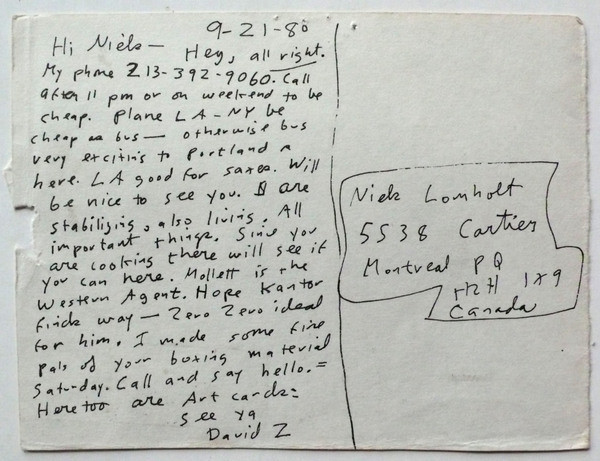 9-21-80
Hi Niels — Hey, all right.
My phone 213-392-9060. Call
after 11 pm or on weekend to be
cheap. Plane LA-NY be
cheap as bus — otherwise bus
very exciting to Portland
here. LA good for saxes. Will
be nice to see you. are
stabilizing, also living. All
important things. Since you
are looking there will see if
you can here. Mollett is the
Western Agent. Hope Kantor
finds way — Zero Zero ideal
for him. I made some fine
pals of your boxing material
Saturday. Call and say hello. =
Here too are Art cards =
See ya
David Z
Niels Lomholt
5538 Cartier
Montreal PQ
H2H 1X9
Canada